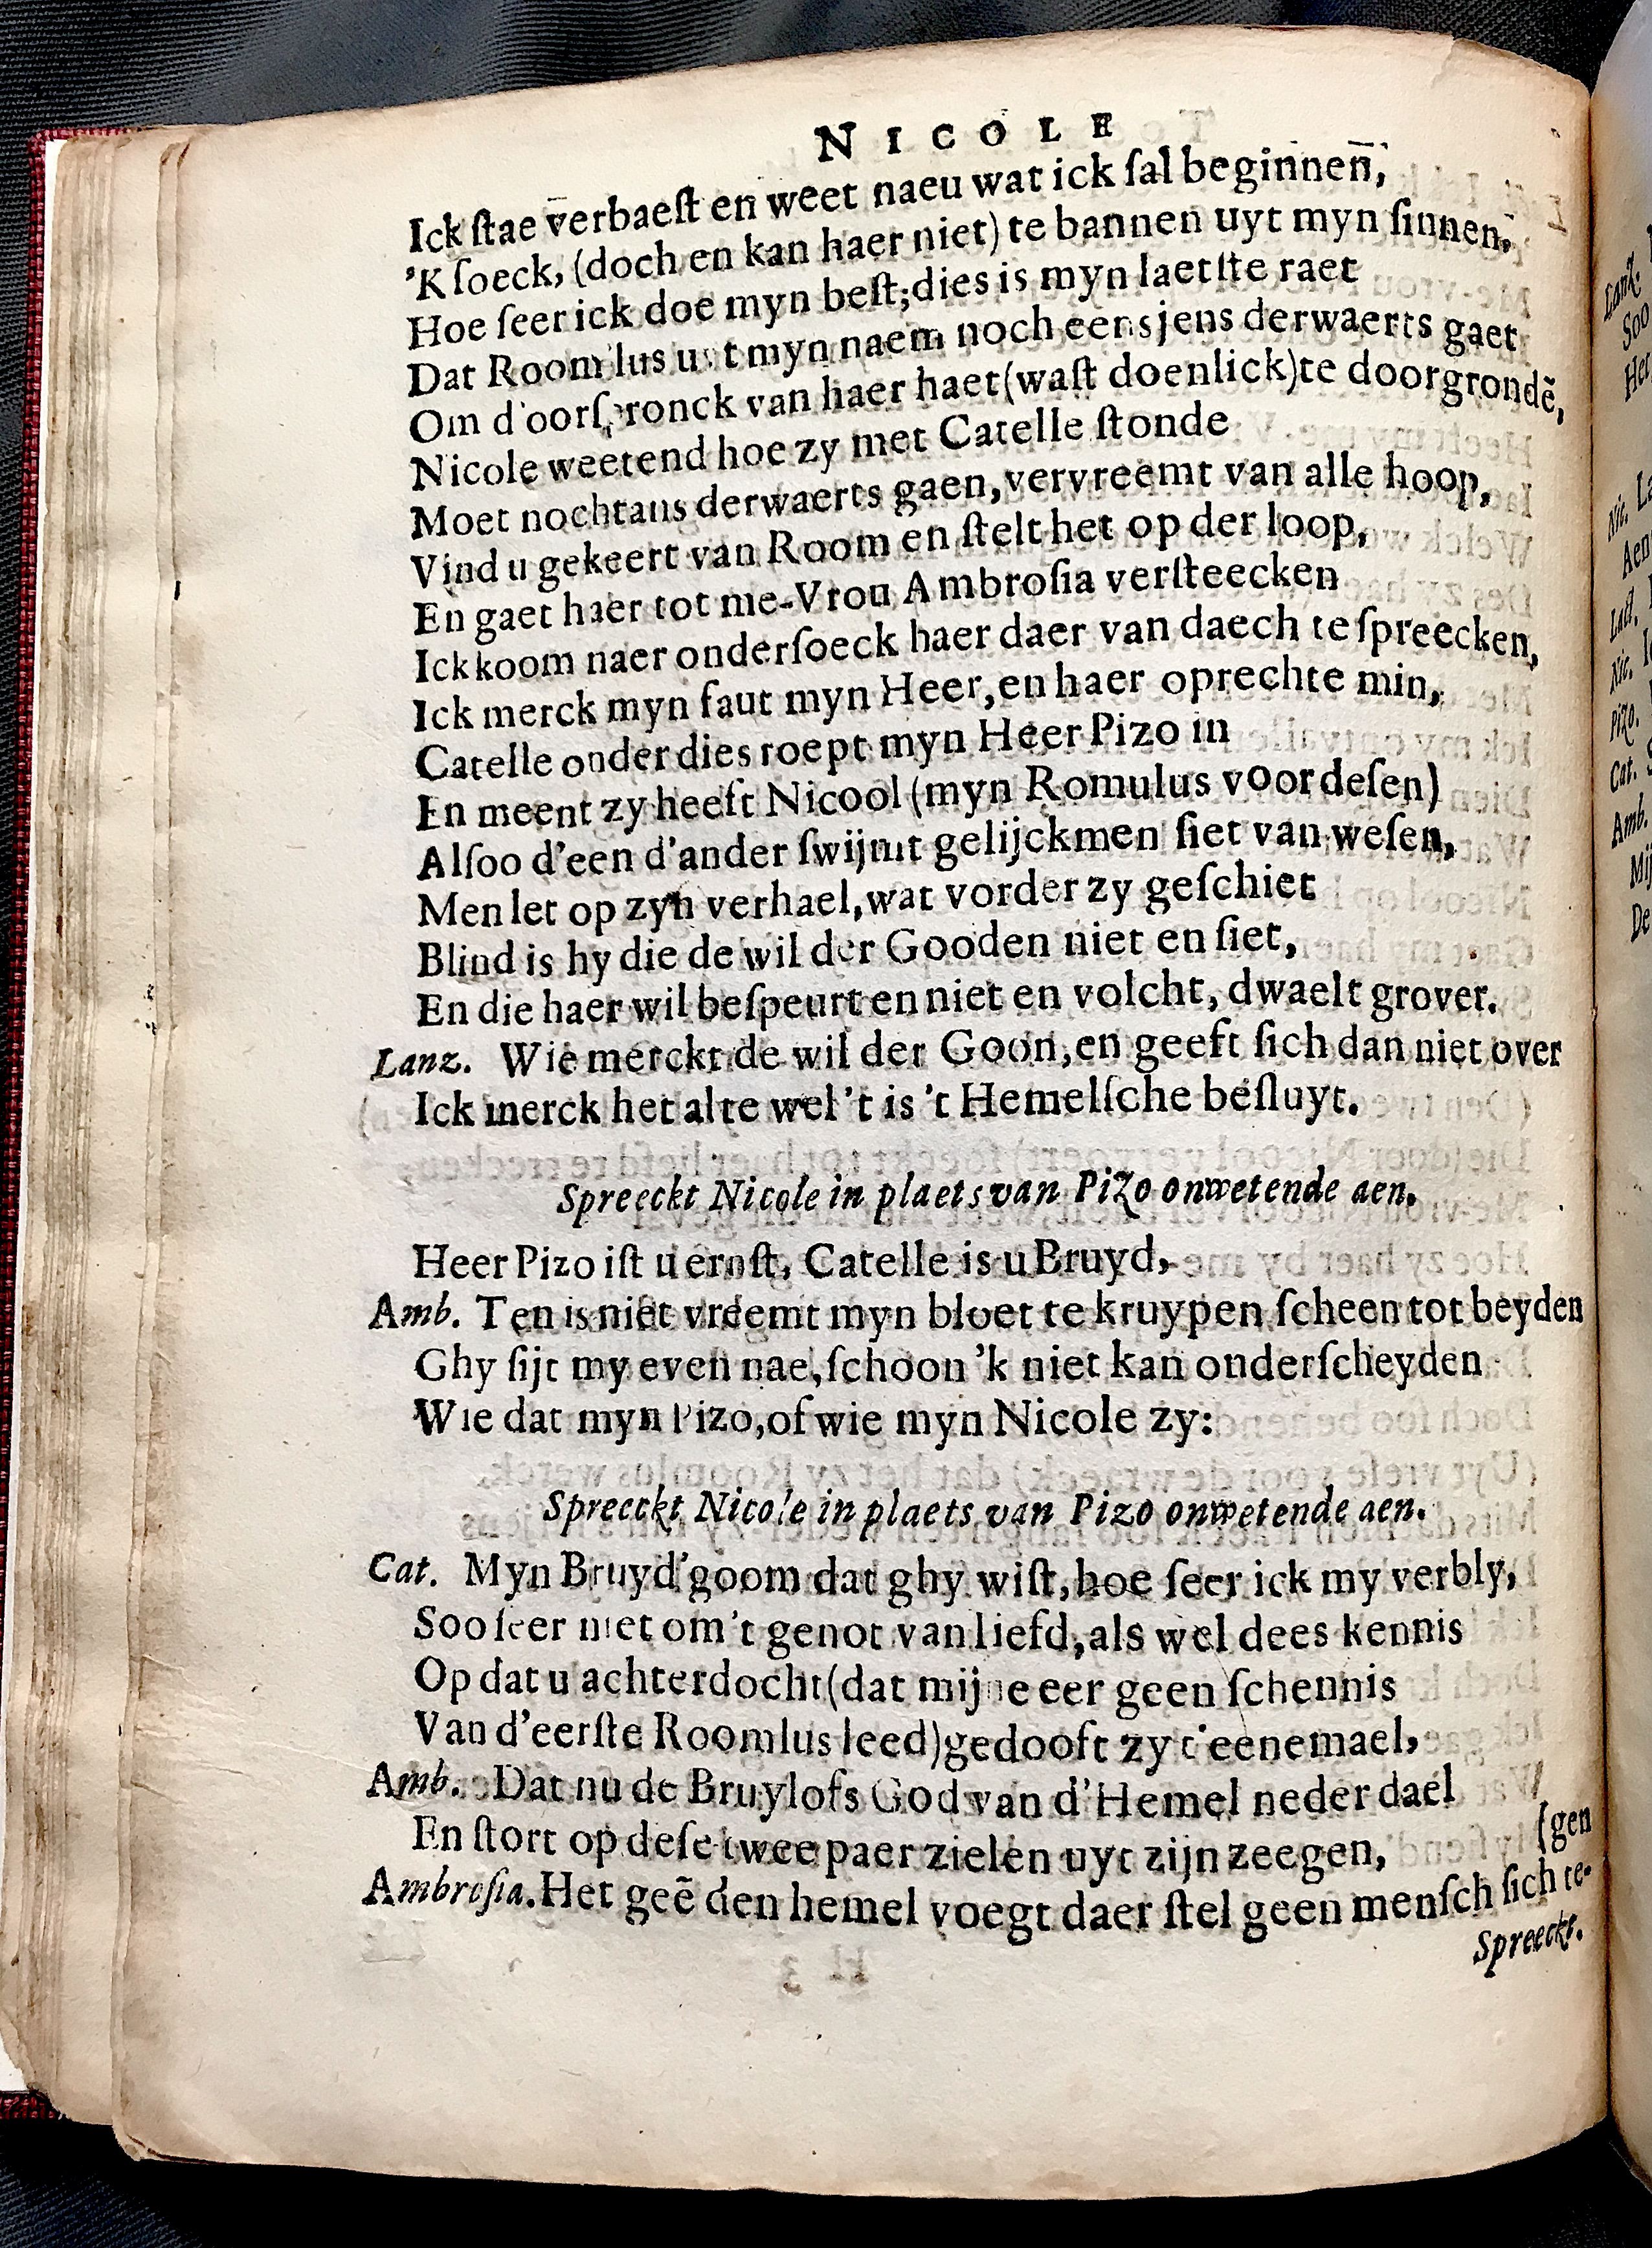 NICOLE
Ick ſtae verbaeſt en weet naeu wat ick ſal beginnen,
'K ſoeck, (doch en kan haer niet) te bannen uyt myn ſinnen,
Hoe ſeer ick doe myn beſt; dies is myn laetſte raet
Dat Roomlus uyt myn naem noch eensjens derwaerts gaet
Om d'oorſpronck van haer haet (waſt doenlick) te doorgrondẽ,
Nicole weetend hoe zy met Catelle ſtonde
Moet nochtans derwaerts gaen, vervreemt van alle hoop,
Vind u gekeert van Room en ſtelt het op der loop,
En gaet haer tot me-Vrou Ambroſia verſteecken
Ick koom naer onderſoeck haer daer van daech te ſpreecken,
Ick merck myn faut myn Heer, en haer oprechte min,
Catelle onder dies roept myn Heer Pizo in
En meent zy heeft Nicool (myn Romulus voor deſen)
Alſoo d'een d'ander ſwijmt gelijckmen ſiet van weſen,
Men let op zyn verhael, wat vorder zy geſchiet
Blind is hy die de wil der Gooden niet en ſiet,
En die haer wil beſpeurt en niet en volcht, dwaelt grover.
Lanz. Wie merckt de wil der Goon, en geeft ſich dan niet over
Ick merck het al te wel 't is 't Hemelſche beſluyt.
Spreeckt Nicole in plaets van Pizo onwetende aen.
Heer Pizo iſt u ernſt, Catelle is u Bruyd,
Amb. Ten is niet vreemt myn bloet te kruypen ſcheen tot beyden
Ghy ſijt my even nae, ſchoon 'k niet kan onderſcheyden
Wie dat myn Pizo, of wie myn Nicole zy:
Spreeckt Nicole in plaets van Pizo onwetende aen.
Cat. Myn Bruyd'goom dat ghy wiſt, hoe ſeer ick my verbly,
Soo ſeer niet om 't genot van liefd, als wel dees kennis
Op dat u achterdocht (dat mijne eer geen ſchennis
Van d'eerſte Roomlus leed) gedooft zy t'eenemael,
Amb. Dat nu de Bruylofs God van d'Hemel neder dael
En ſtort op deſe twee paer zielen uyt zijn zeegen, (gen
Ambroſia. Het geẽ den hemel voegt daer ſtel geen menſch ſich te-
Spreeckt.